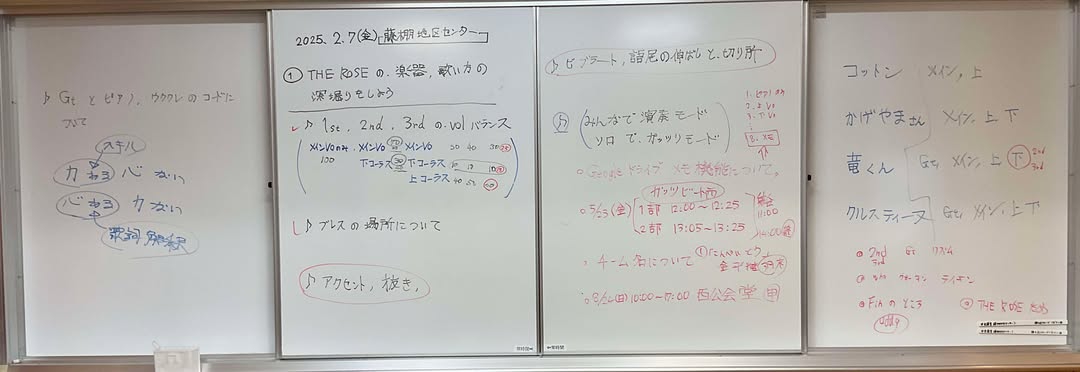 ♪ Gt とピアノ、ウクレレのコードに
ついて
スキル
力わる 心 ない
心わる 力 ない
歌詞 解釈
2025. 2. 7(金) 藤棚地区センター
① THE ROSE の、楽器、歌い方の
深堀りをしよう
♪ 1st, 2nd, 3rd の vol バランス
メインVoのみ メインVo メインVo 50 40 30
100 下コーラス 30 下コーラス 10 10 10
上コーラス 40 50
♪ ブレスの場所について
♪ アクセント, 抜き,
♪ ビブラート, 語尾の伸ばしと、切り所
みんなで 演奏モード
ソロで、ガッツリモード
1. ピアノ
2. 上 Vo
3. 下 Vo
8. メモ
○ Google ドライブ メモ機能について。
ガッツビート西
○ 5/23 (金) 1部 12:00〜12:25
2部 13:05〜13:25
集合
11:00
14:00
○ チーム名について
(日) 10:00〜17:00 西公会堂
コットン メイン, 上
かげやまさん メイン, 上 下
竜くん Gt, メイン, 上 下 2nd
3rd
クルスティーヌ Gt, メイン, 上下
2nd Gt リズム
3rd
Fin のところ
add9
THE ROSE